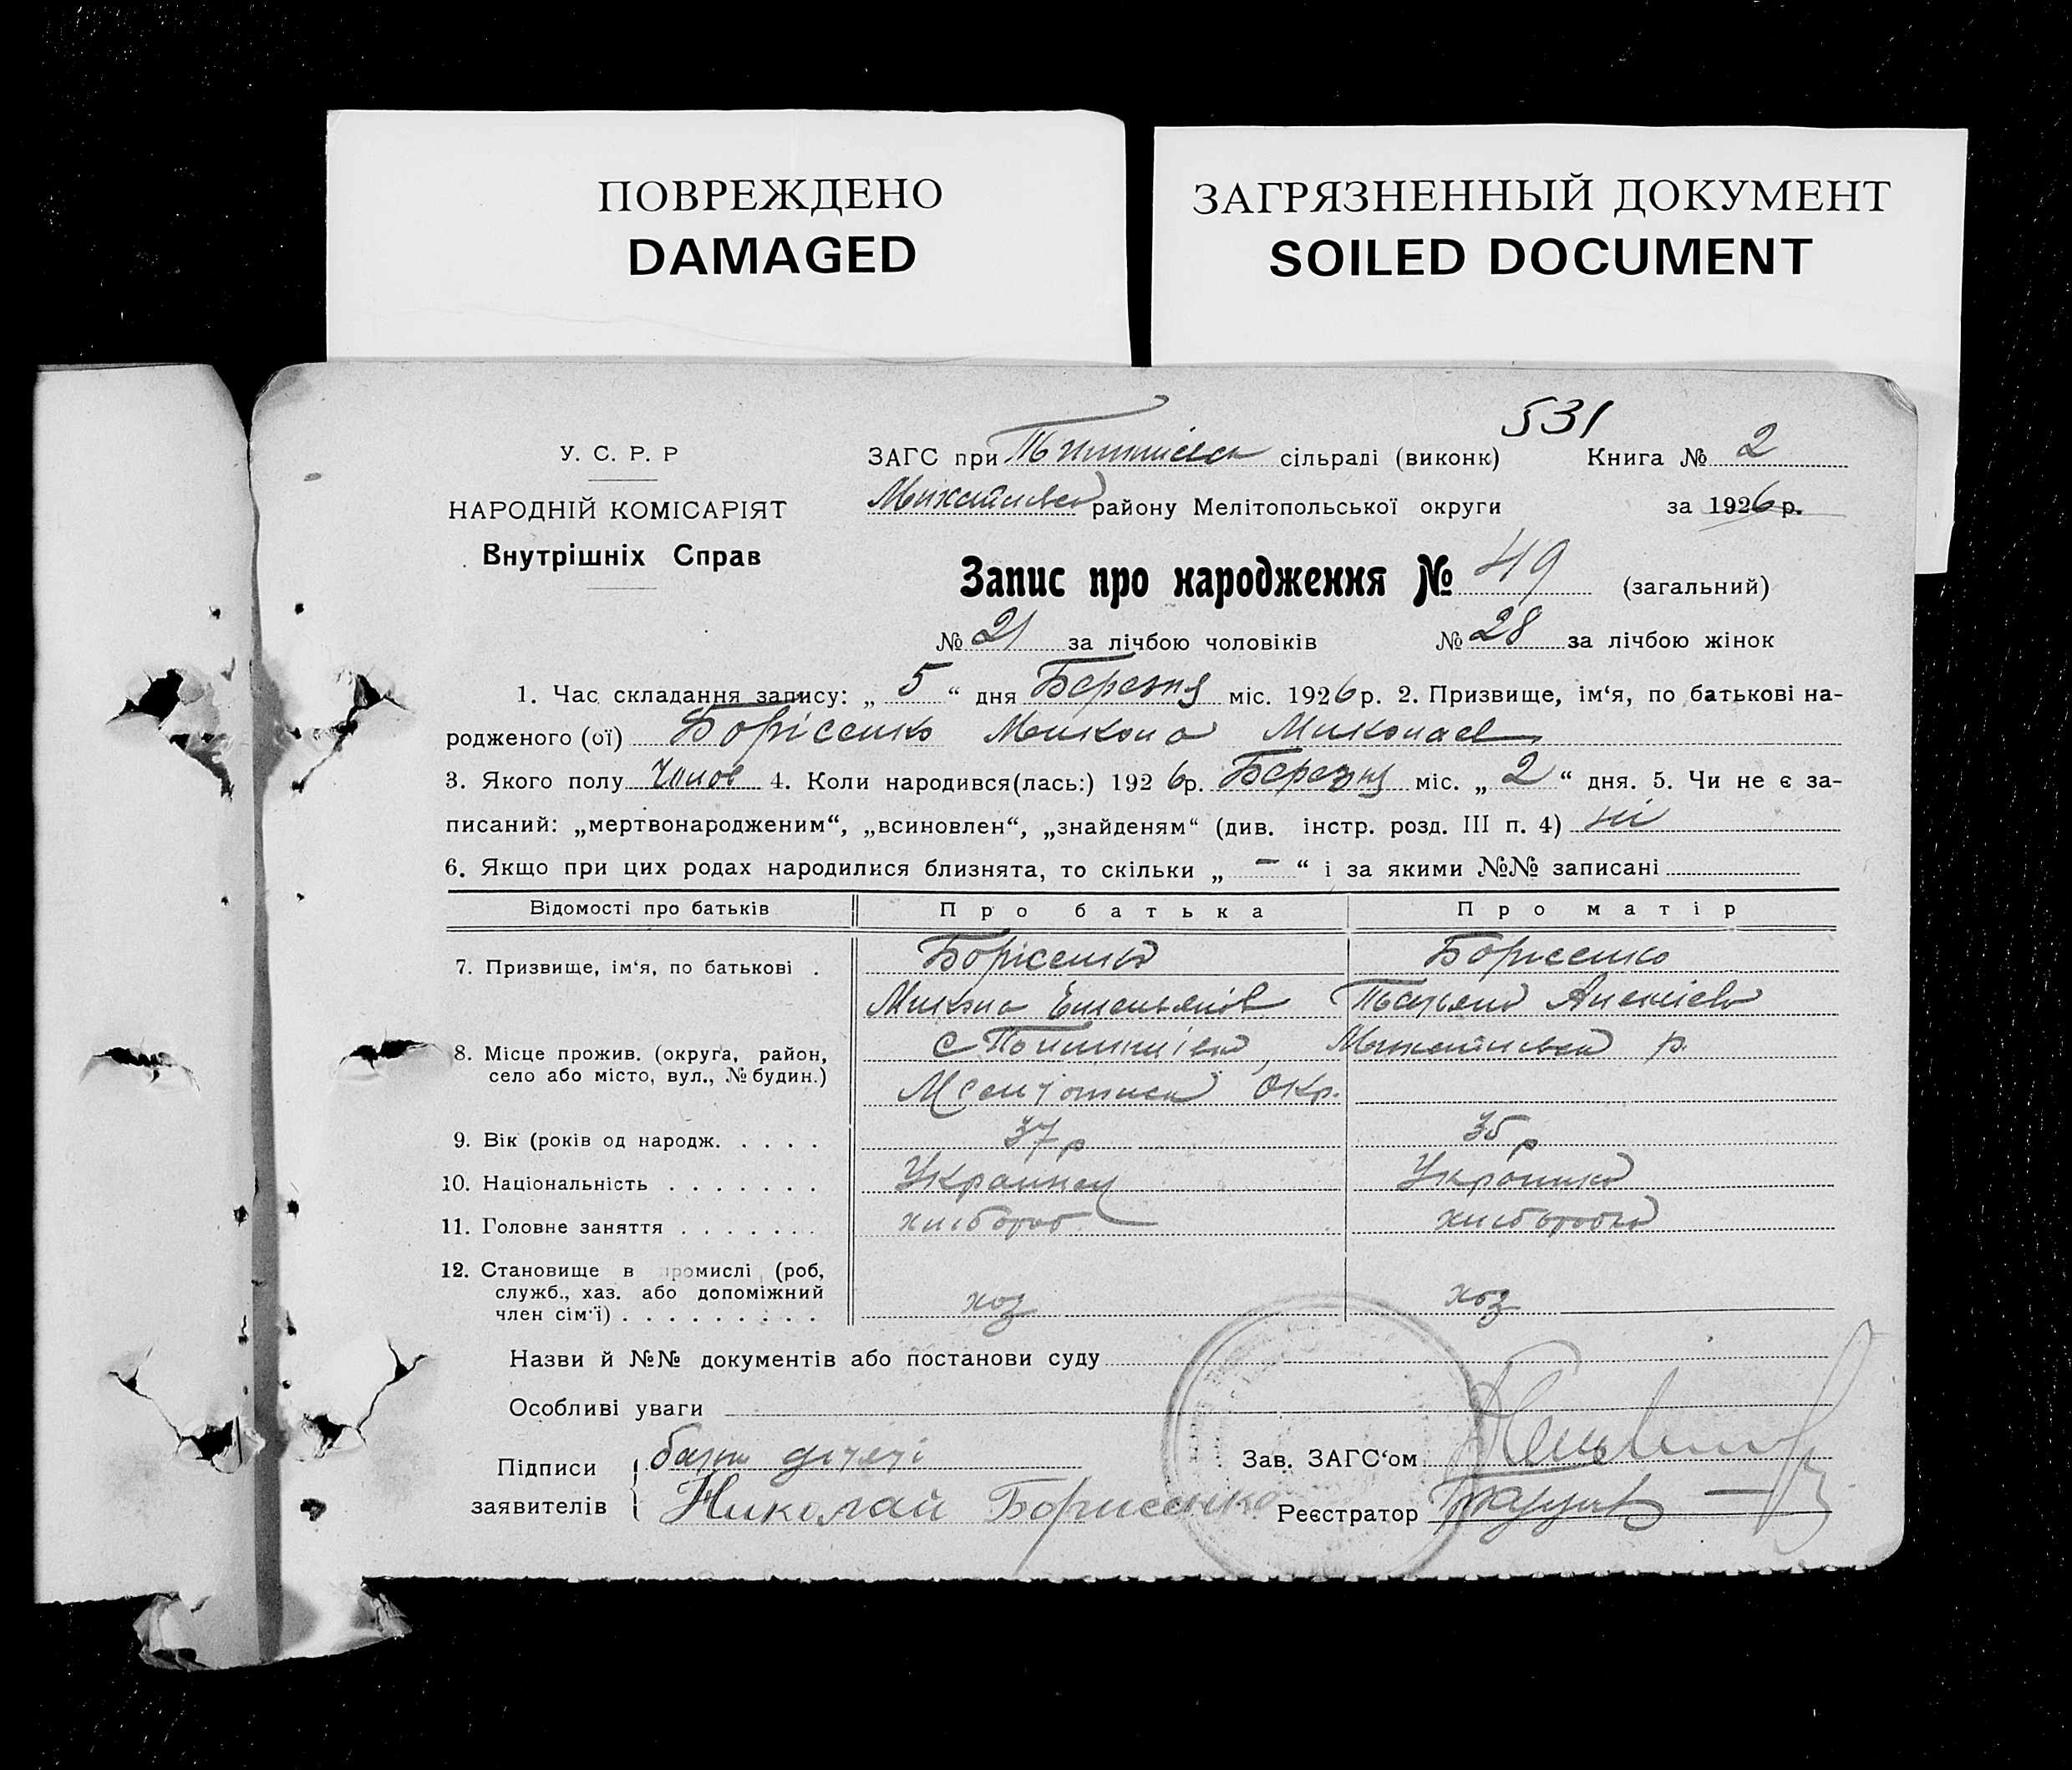 ПОВРЕЖДЕНО
DAMAGED
ЗАГРЯЗНЕННЫЙ ДОКУМЕНТ
SOILED DOCUMENT
531
У. С. Р. Р
НАРОДНІЙ КОМІСАРІЯТ
Внутрішніх Справ
ЗАГС при сільраді (виконк) Книга № 2
Михайлівсь району Мелітопольської округи за 1926 р.
Запис про народження № 49 (загальний)
№ 21 за лічбою чоловіків № 28 за лічбою жінок
1. Час складання запису: „ 5 “ дня Березня міс. 1926 р. 2. Призвище, ім‘я, по батькові на-
родженого (ої) Борісенко Микола Миколаев
3. Якого полу Чолов 4. Коли народився(лась:) 192 6р. Березня міс. „ 2 “ дня. 5. Чи не є за-
писаний: „мертвонародженим“, „всиновлен“, „знайденям“ (див. інстр. розд. III п. 4) ні
6. Якщо при цих родах народилися близнята, то скільки „ – “ і за якими №№ записані
Відомості про батьків Про батька Про матір
7. Призвище, ім‘я, по батькові . Борісенко Борисенко
Микола Емельянів Татьяна Алексіев
8. Місце прожив. (округа, район,
село або місто, вул., № будин.)
с р.
Окр.
9. Вік (років од народж. . . . . 37 р 35 р
10. Національність . . . . . . . Украинец Украинка
11. Головне заняття . . . . . . . хлібороб хліборобка
12. Становище в промислі (роб,
служб., хаз. або допоміжний
член сім‘ї) . . . . . . . . . хоз хоз
Назви й №№ документів або постанови суду
Особливі уваги
Підписи
заявителів
батько дітяті
Николай Борисенко
Зав. ЗАГС‘ом
Реєстратор